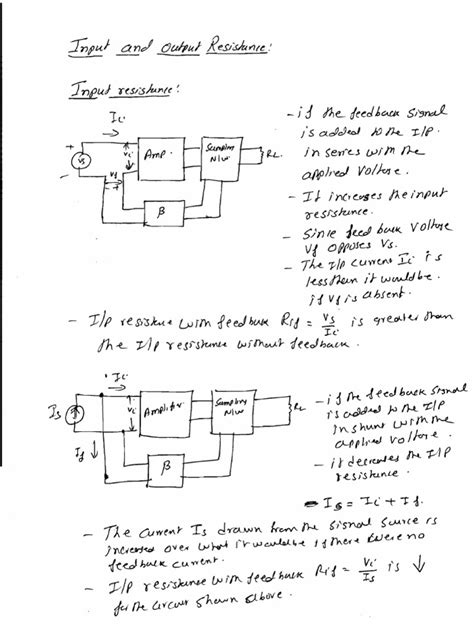 Input and output Resistance:
Input resistance:
Ii
+
Vs
-
Vi
Amp.
Sampling
N/W
RL
Vf
- +
β
- if the feedback signal
is added to the I/P
in series with the
applied voltage.
- It increases the input
resistance.
- Since feed back voltage
Vf opposes Vs.
- The I/p current Ii is
less than it would be.
if Vf is absent.
- I/p resistance with feedback Rif = Vs/Ii is greater than
the I/p resistance without feedback.
Ii
Is
Vi
Amplifier
Sampling
N/W
RL
If ↓
β
- if the feedback signal
is added to the I/P
in shunt with the
applied voltage.
- it decreases the I/P
resistance.
- Is = Ii + If.
- The current Is drawn from the signal source is
increased over what it would be if there were no
feedback current.
- I/P resistance with feedback Rif = Vi/Is is ↓
for the circuit shown above.